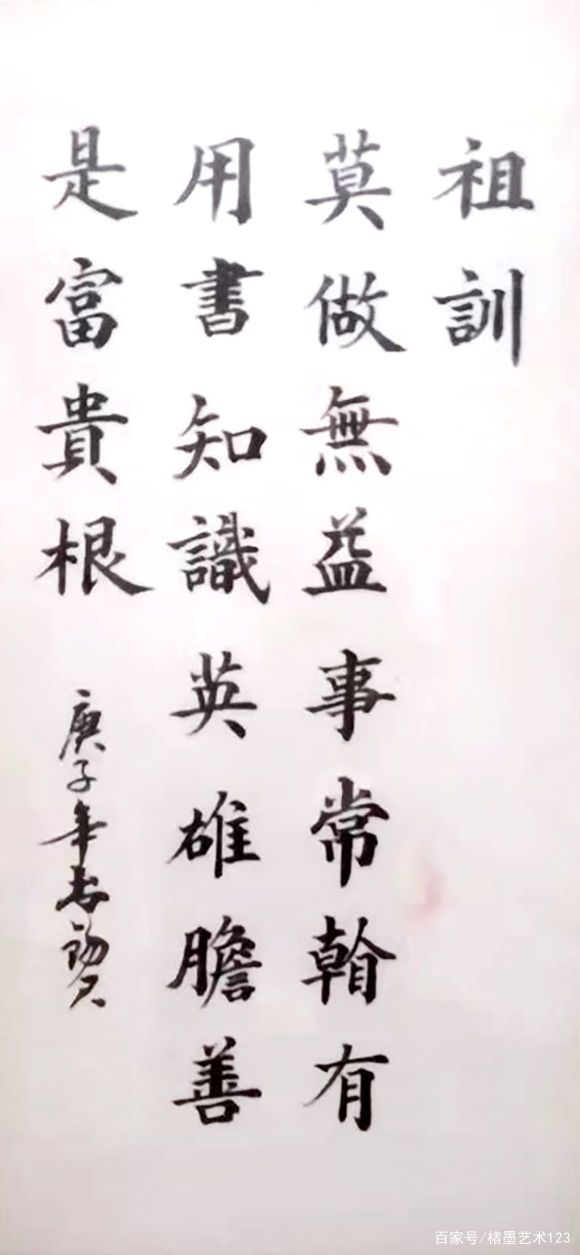 祖訓
莫做無益事常翰有
用書知識英雄膽善
是富貴根
庚子年
百家号/楮墨艺术123